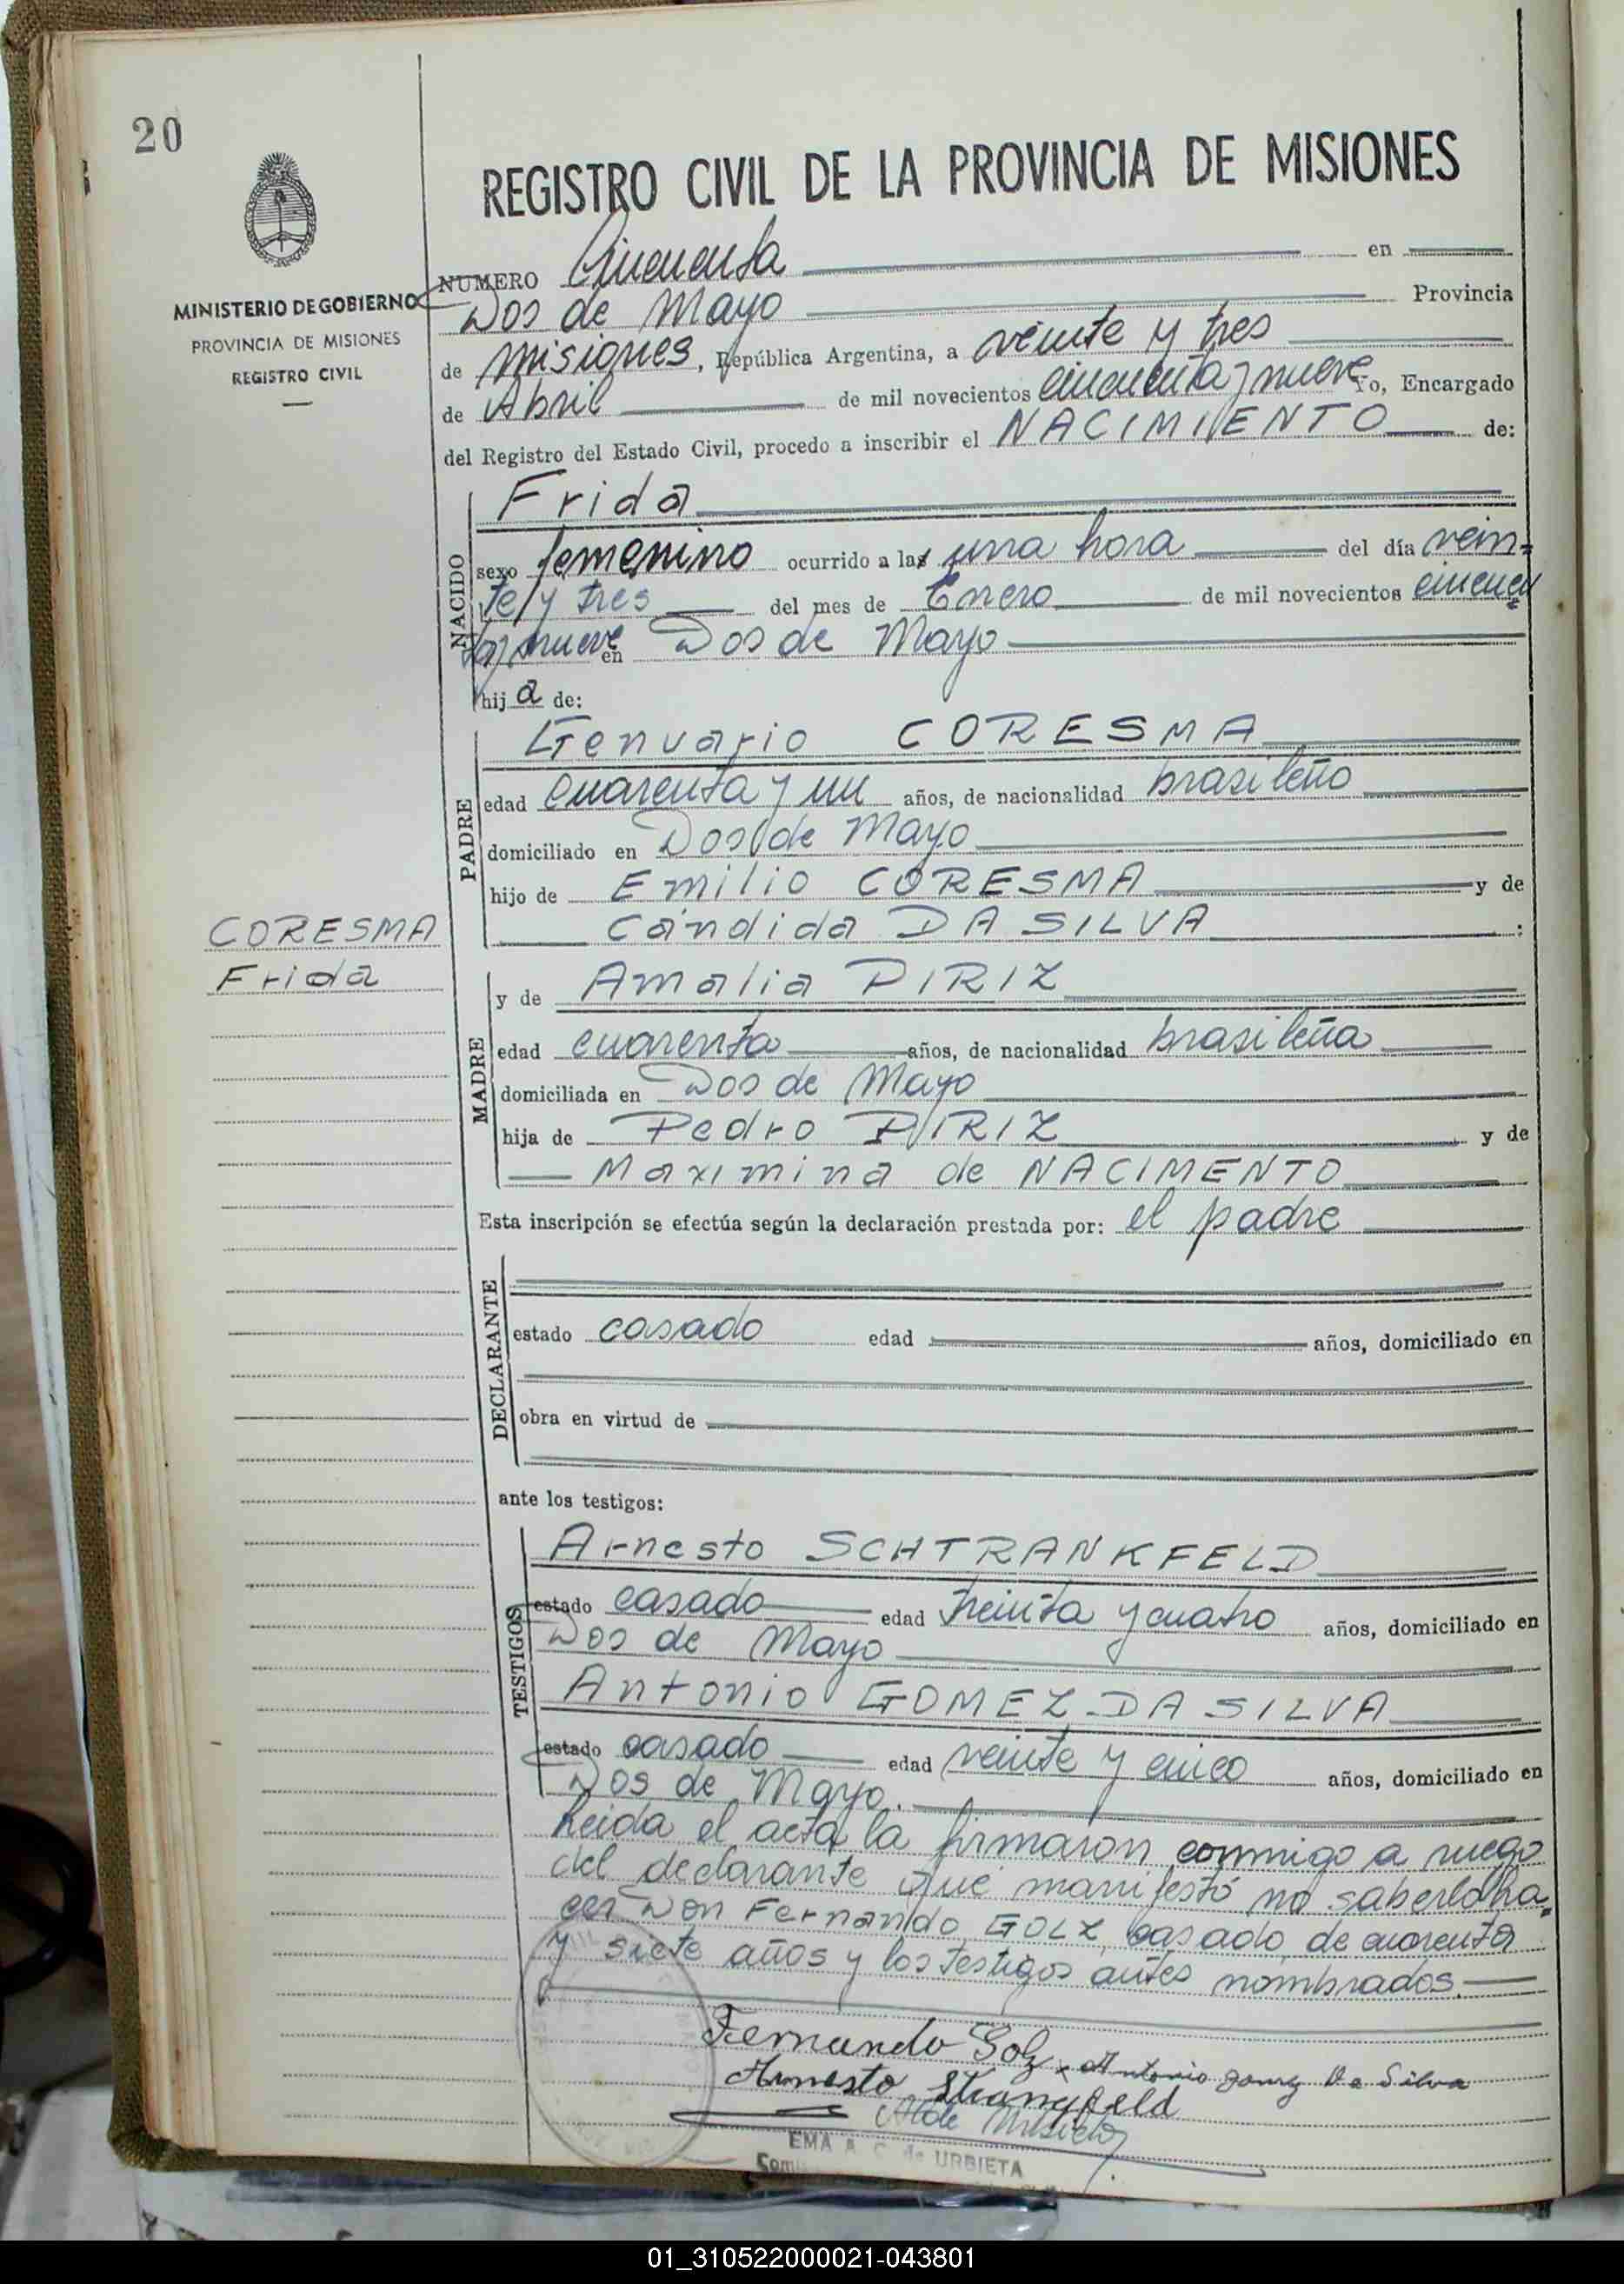 20
REGISTRO CIVIL DE LA PROVINCIA DE MISIONES
MINISTERIO DE GOBIERNO
PROVINCIA DE MISIONES
REGISTRO CIVIL
NUMERO Cincuenta en
Dos de Mayo Provincia
de Misiones, República Argentina, a veinte y tres
de Abril de mil novecientos cincuenta y nueve Yo, Encargado
del Registro del Estado Civil, procedo a inscribir el NACIMIENTO de:
NACIDO
Frida
sexo femenino ocurrido a las una hora del día vein-
te y tres del mes de Enero de mil novecientos cincuen
ta y nueve en Dos de Mayo
hij a de:
PADRE
Genvario CORESMA
edad cuarenta y un años, de nacionalidad brasileño
domiciliado en Dos de Mayo
hijo de Emilio CORESMA y de
Cándida DA SILVA :
CORESMA
Frida
MADRE
y de Amalia PIRIZ
edad cuarenta años, de nacionalidad brasileña
domiciliada en Dos de Mayo
hija de Pedro PIRIZ y de
Maximina de NACIMENTO
Esta inscripción se efectúa según la declaración prestada por: el padre
DECLARANTE
estado casado edad años, domiciliado en
obra en virtud de
ante los testigos:
TESTIGOS
Arnesto SCHTRANKFELD
estado casado edad treinta y cuatro años, domiciliado en
Dos de Mayo
Antonio GOMEZ DA SILVA
estado casado edad veinte y cinco años, domiciliado en
Dos de Mayo.
Leida el acta la firmaron conmigo a ruego
del declarante que manifestó no saberlo ha-
cer Don Fernando GOLZ, casado, de cuarenta
y siete años y los testigos antes nombrados.
Fernando Golz x Antonio gomez Da Silva
Arnesto
EMA A. C. de URBIETA
01_310522000021-043801